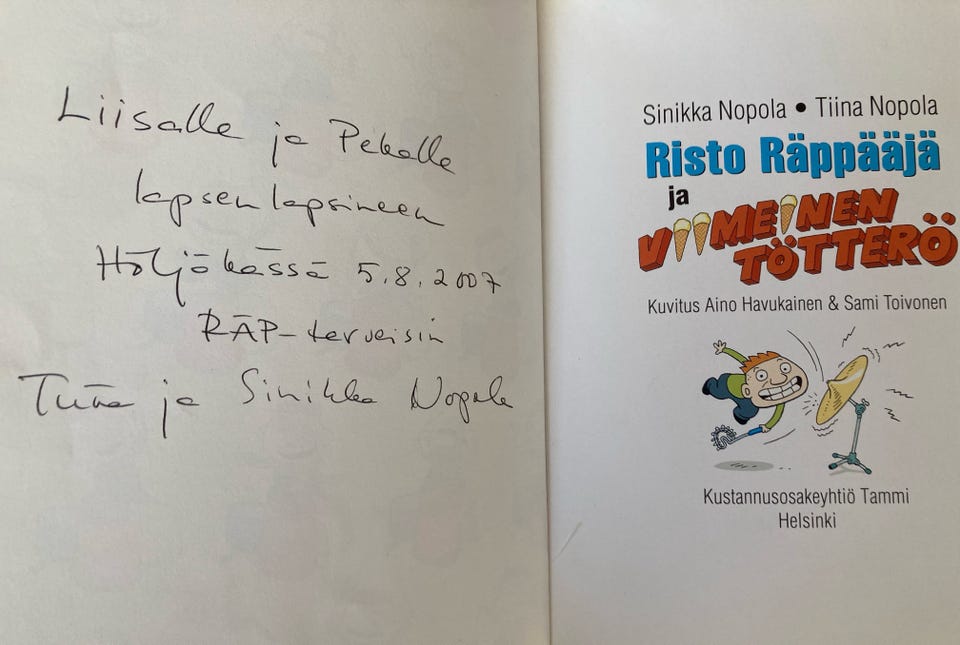 Liisalle ja Pekalle
lapsenlapsineen
Höljäkässä 5.8.2007
RÄP-terveisin
Tiina ja Sinikka Nopola
Sinikka Nopola • Tiina Nopola
Risto Räppääjä
ja
VIIMEINEN
TÖTTERÖ
Kuvitus Aino Havukainen & Sami Toivonen
Kustannusosakeyhtiö Tammi
Helsinki